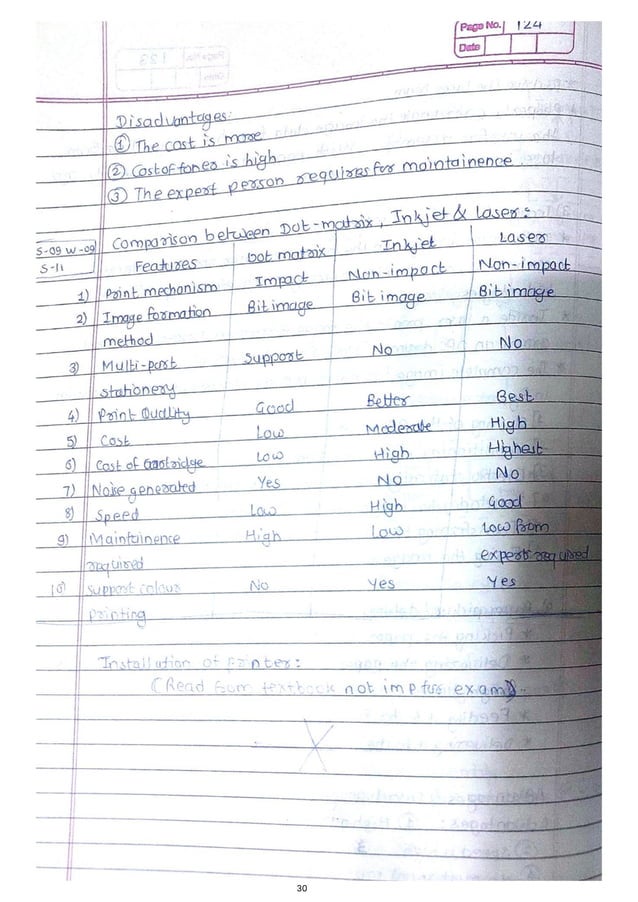 Page No. 124
Date
Disadvantages:
① The cost is more
② Cost of toner is high
③ The expert person requires for maintainence.
S-09 W-09
S-11
Comparison between Dot-matrix, Inkjet & Laser:
Features Dot matrix Inkjet Laser
1) Print mechanism Impact Non-impact Non-impact
2) Image formation Bit image Bit image Bit image
method
3) Multi-part Support No No
stationery
4) Print Quality Good Better Best
5) Cost Low Moderate High
6) Cost of Cartridge Low High Highest
7) Noise generated Yes No No
8) Speed Low High Good
9) Maintainence High Low Low from
required expert required
10) Support colour No Yes Yes
printing
Installation of Printer:
(Read from textbook not imp for exam)
30